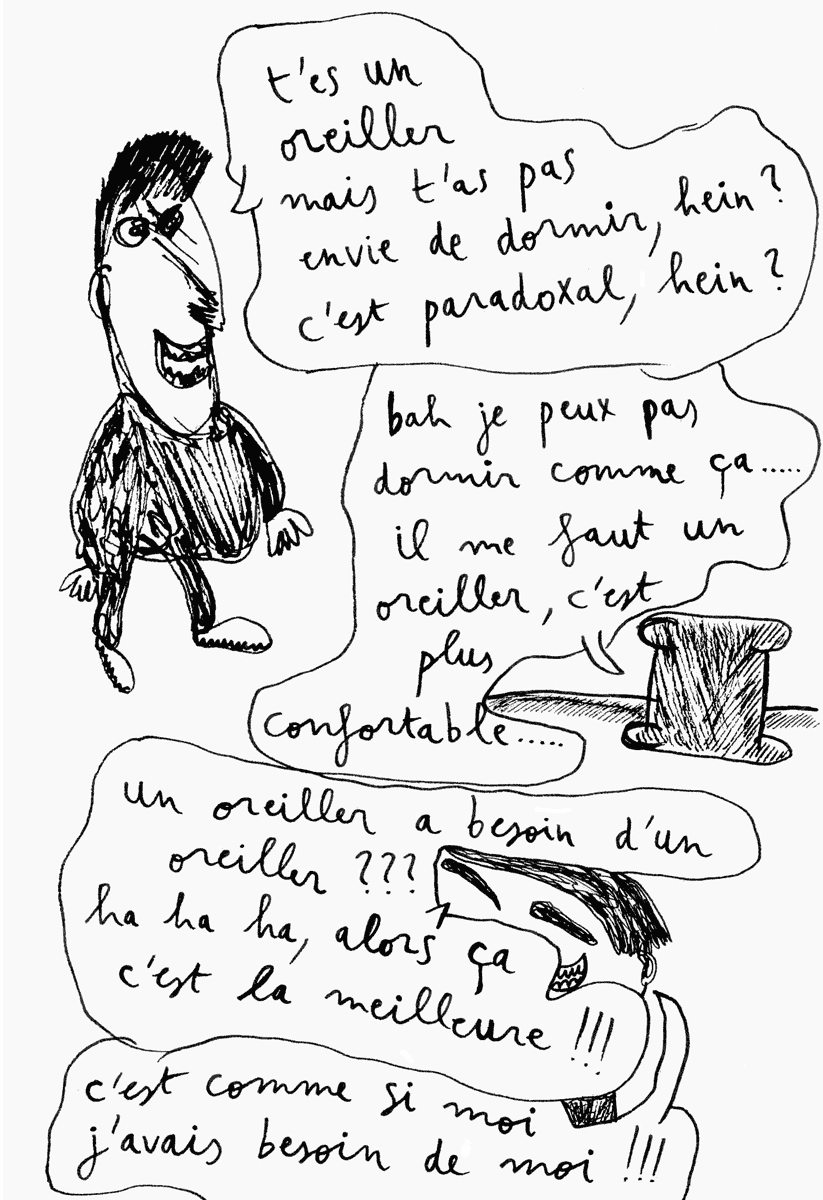 t'es un
oreiller
mais t'as pas
envie de dormir, hein ?
c'est paradoxal, hein ?
bah je peux pas
dormir comme ça.....
il me faut un
oreiller, c'est
plus
confortable.....
un oreiller a besoin d'un
oreiller ???
ha ha ha, alors ça
c'est la meilleure !!!
c'est comme si moi
j'avais besoin de moi !!!